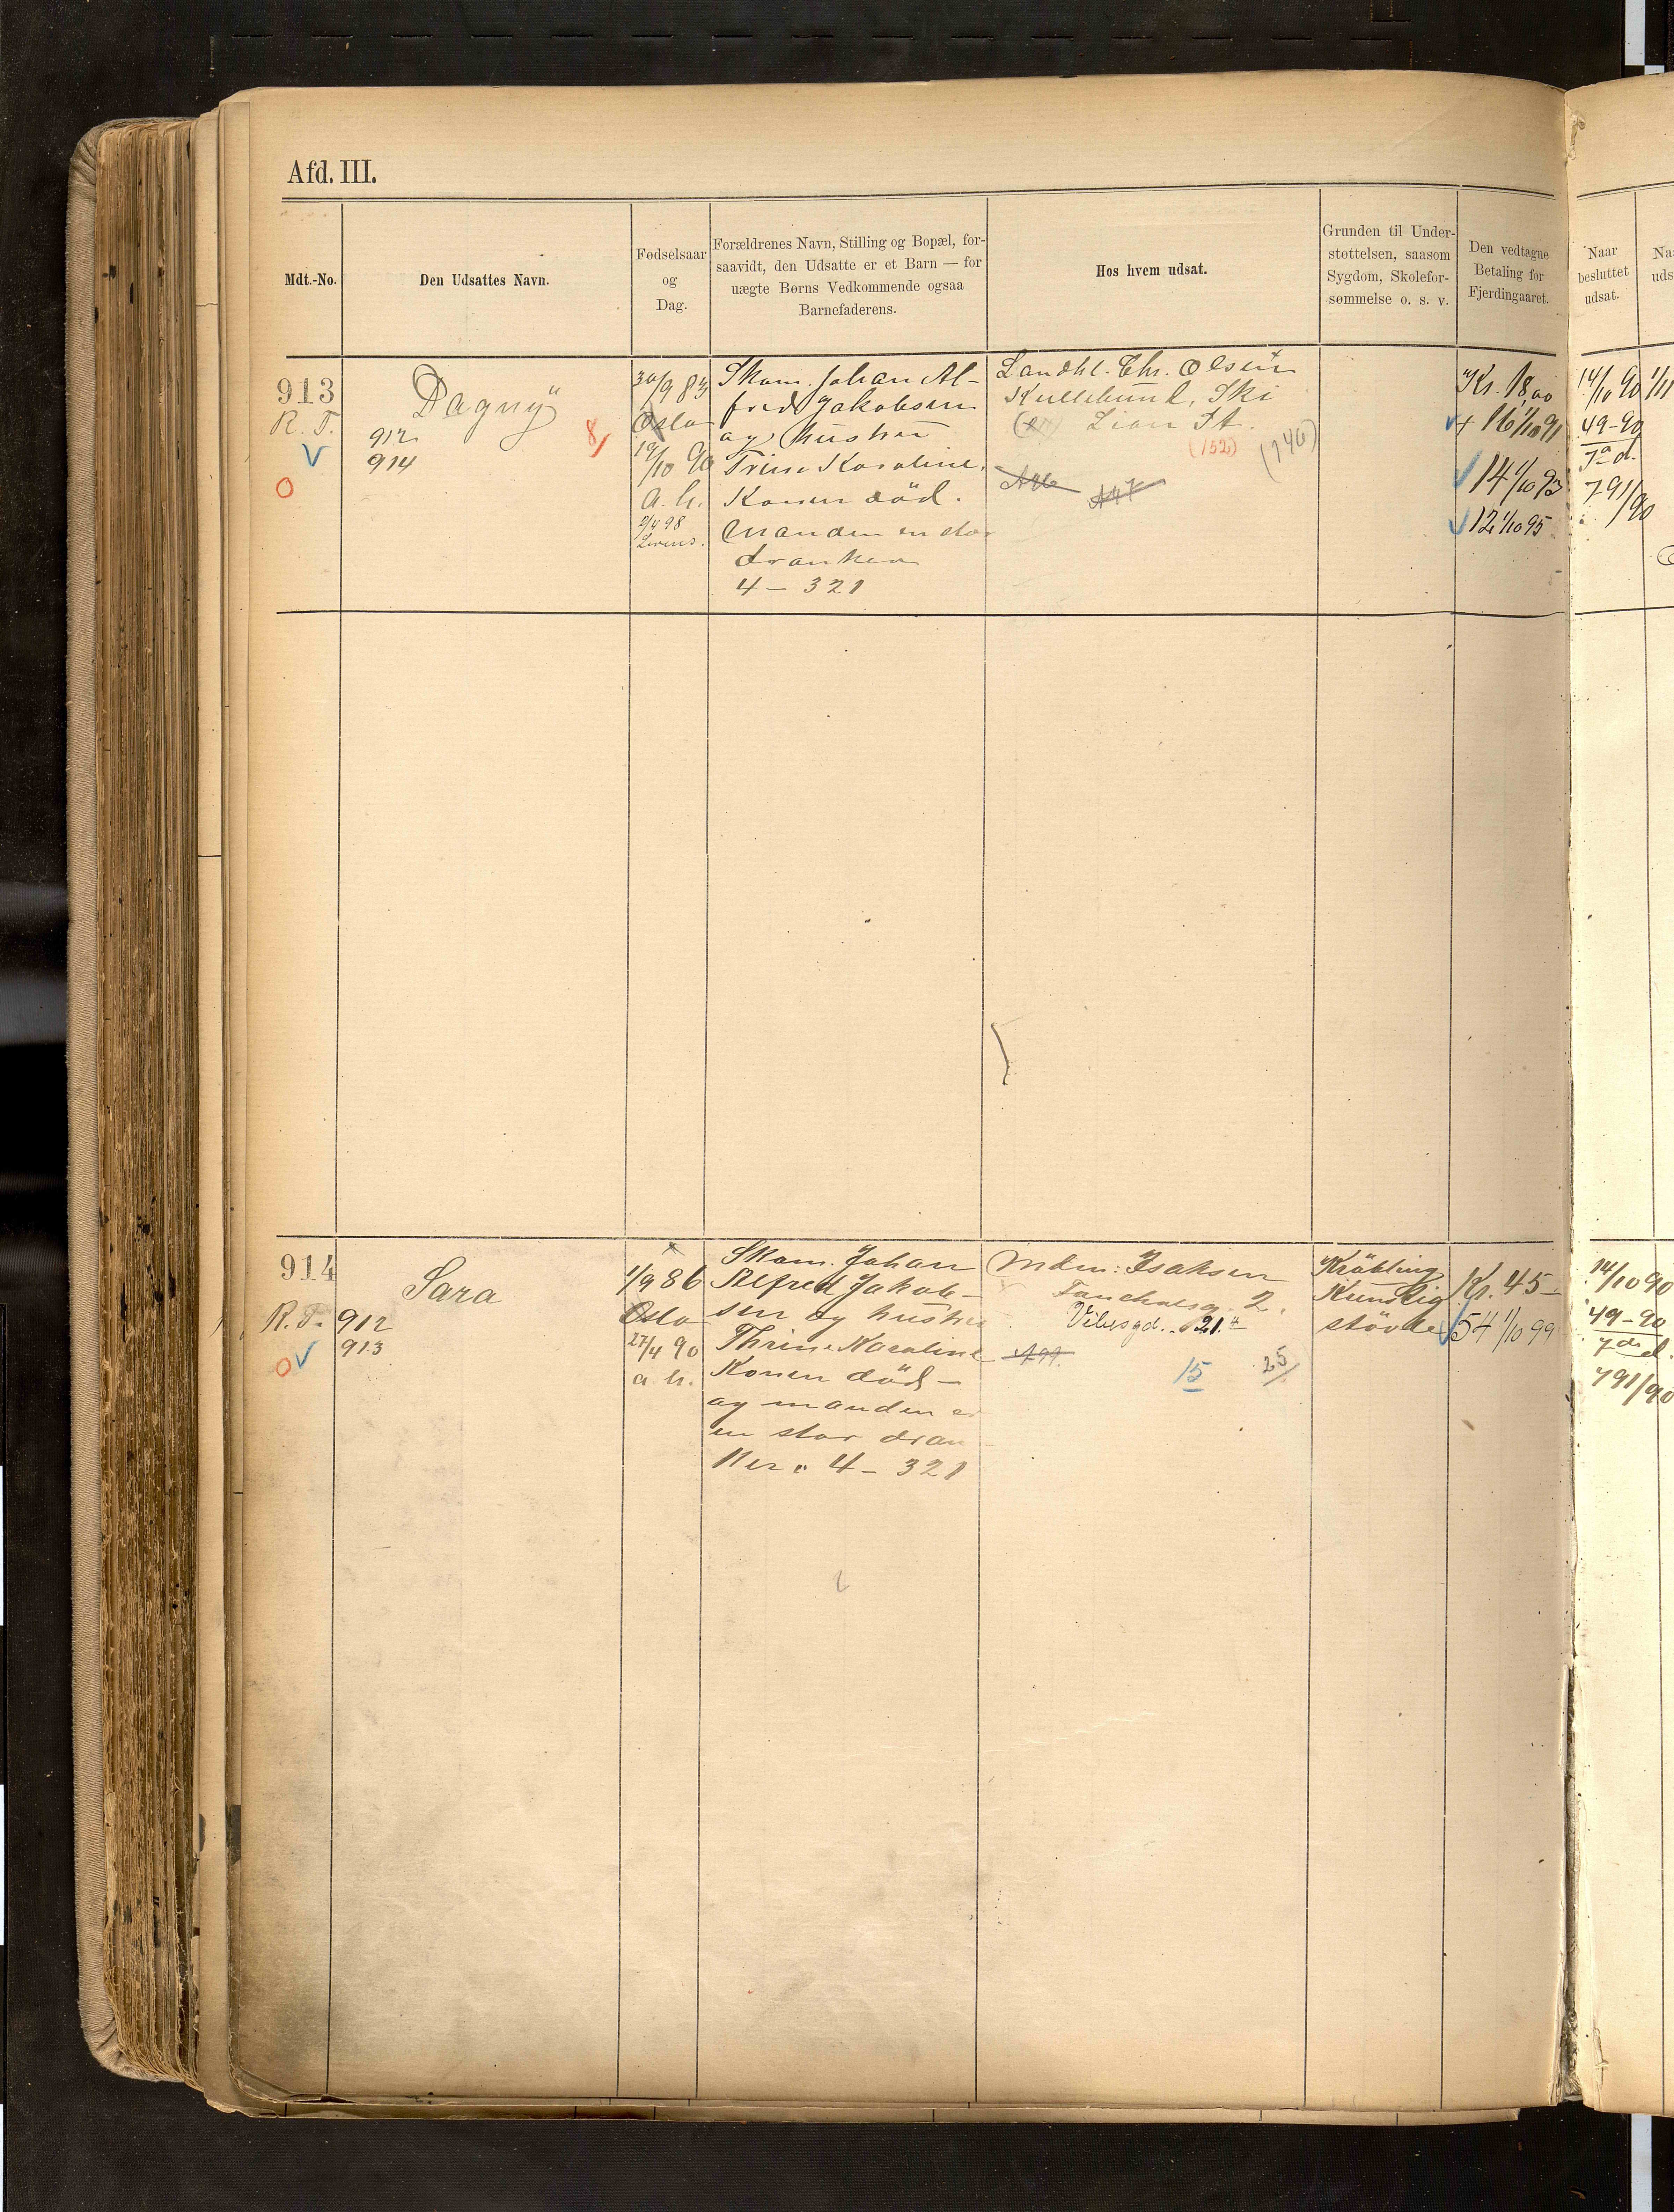 Afd. III.
Mdt.-No.
Den Udsattes Navn.
Fødselsaar
og
Dag.
Forældrenes Navn, Stilling og Bopæl, for-
saavidt, den Udsatte er et Barn — for
uægte Børns Vedkommende ogsaa
Barnefaderens.
Hos hvem udsat.
Grunden til Under-
støttelsen, saasom
Sygdom, Skolefor-
sømmelse o. s. v.
Den vedtagne
Betaling for
Fjerdingaaret.
Naar
besluttet
udsat.
Na
uds
913
R. T.
Dagny
912
914
8/
30/9 83
Oslo
19/10 90
a. h.
2/4 98
Skom. Johan Al-
fred Jakobsen
og hustru
Trine Karoline.
Konen död.
Manden en stor
dranker
4 – 321
Landhl. Chr. Olsen
Kullebund, Ski
Lian St.
(152)
(146)
Kr. 18,00
+ 16 1/10 91
14 1/10 93
12 1/10 95
14/10 90
49-90
7a d.
791/90
914
R. T.
Sara
912
913
1/9 86
Oslo
27/4 90
a. h.
Skom. Johan
Alfred Jakob-
sen og hustru
Thrine Karoline
Konen död –
og manden er
en stor dran
ker. 4 – 321
Mdm: Isaksen
2.
Vibesgd. 21.4
15
25/
Kröbling
Kunstig
stövle
Kr. 45 –
54 1/10 99
14/10 90
49-90
7de d.
791/90